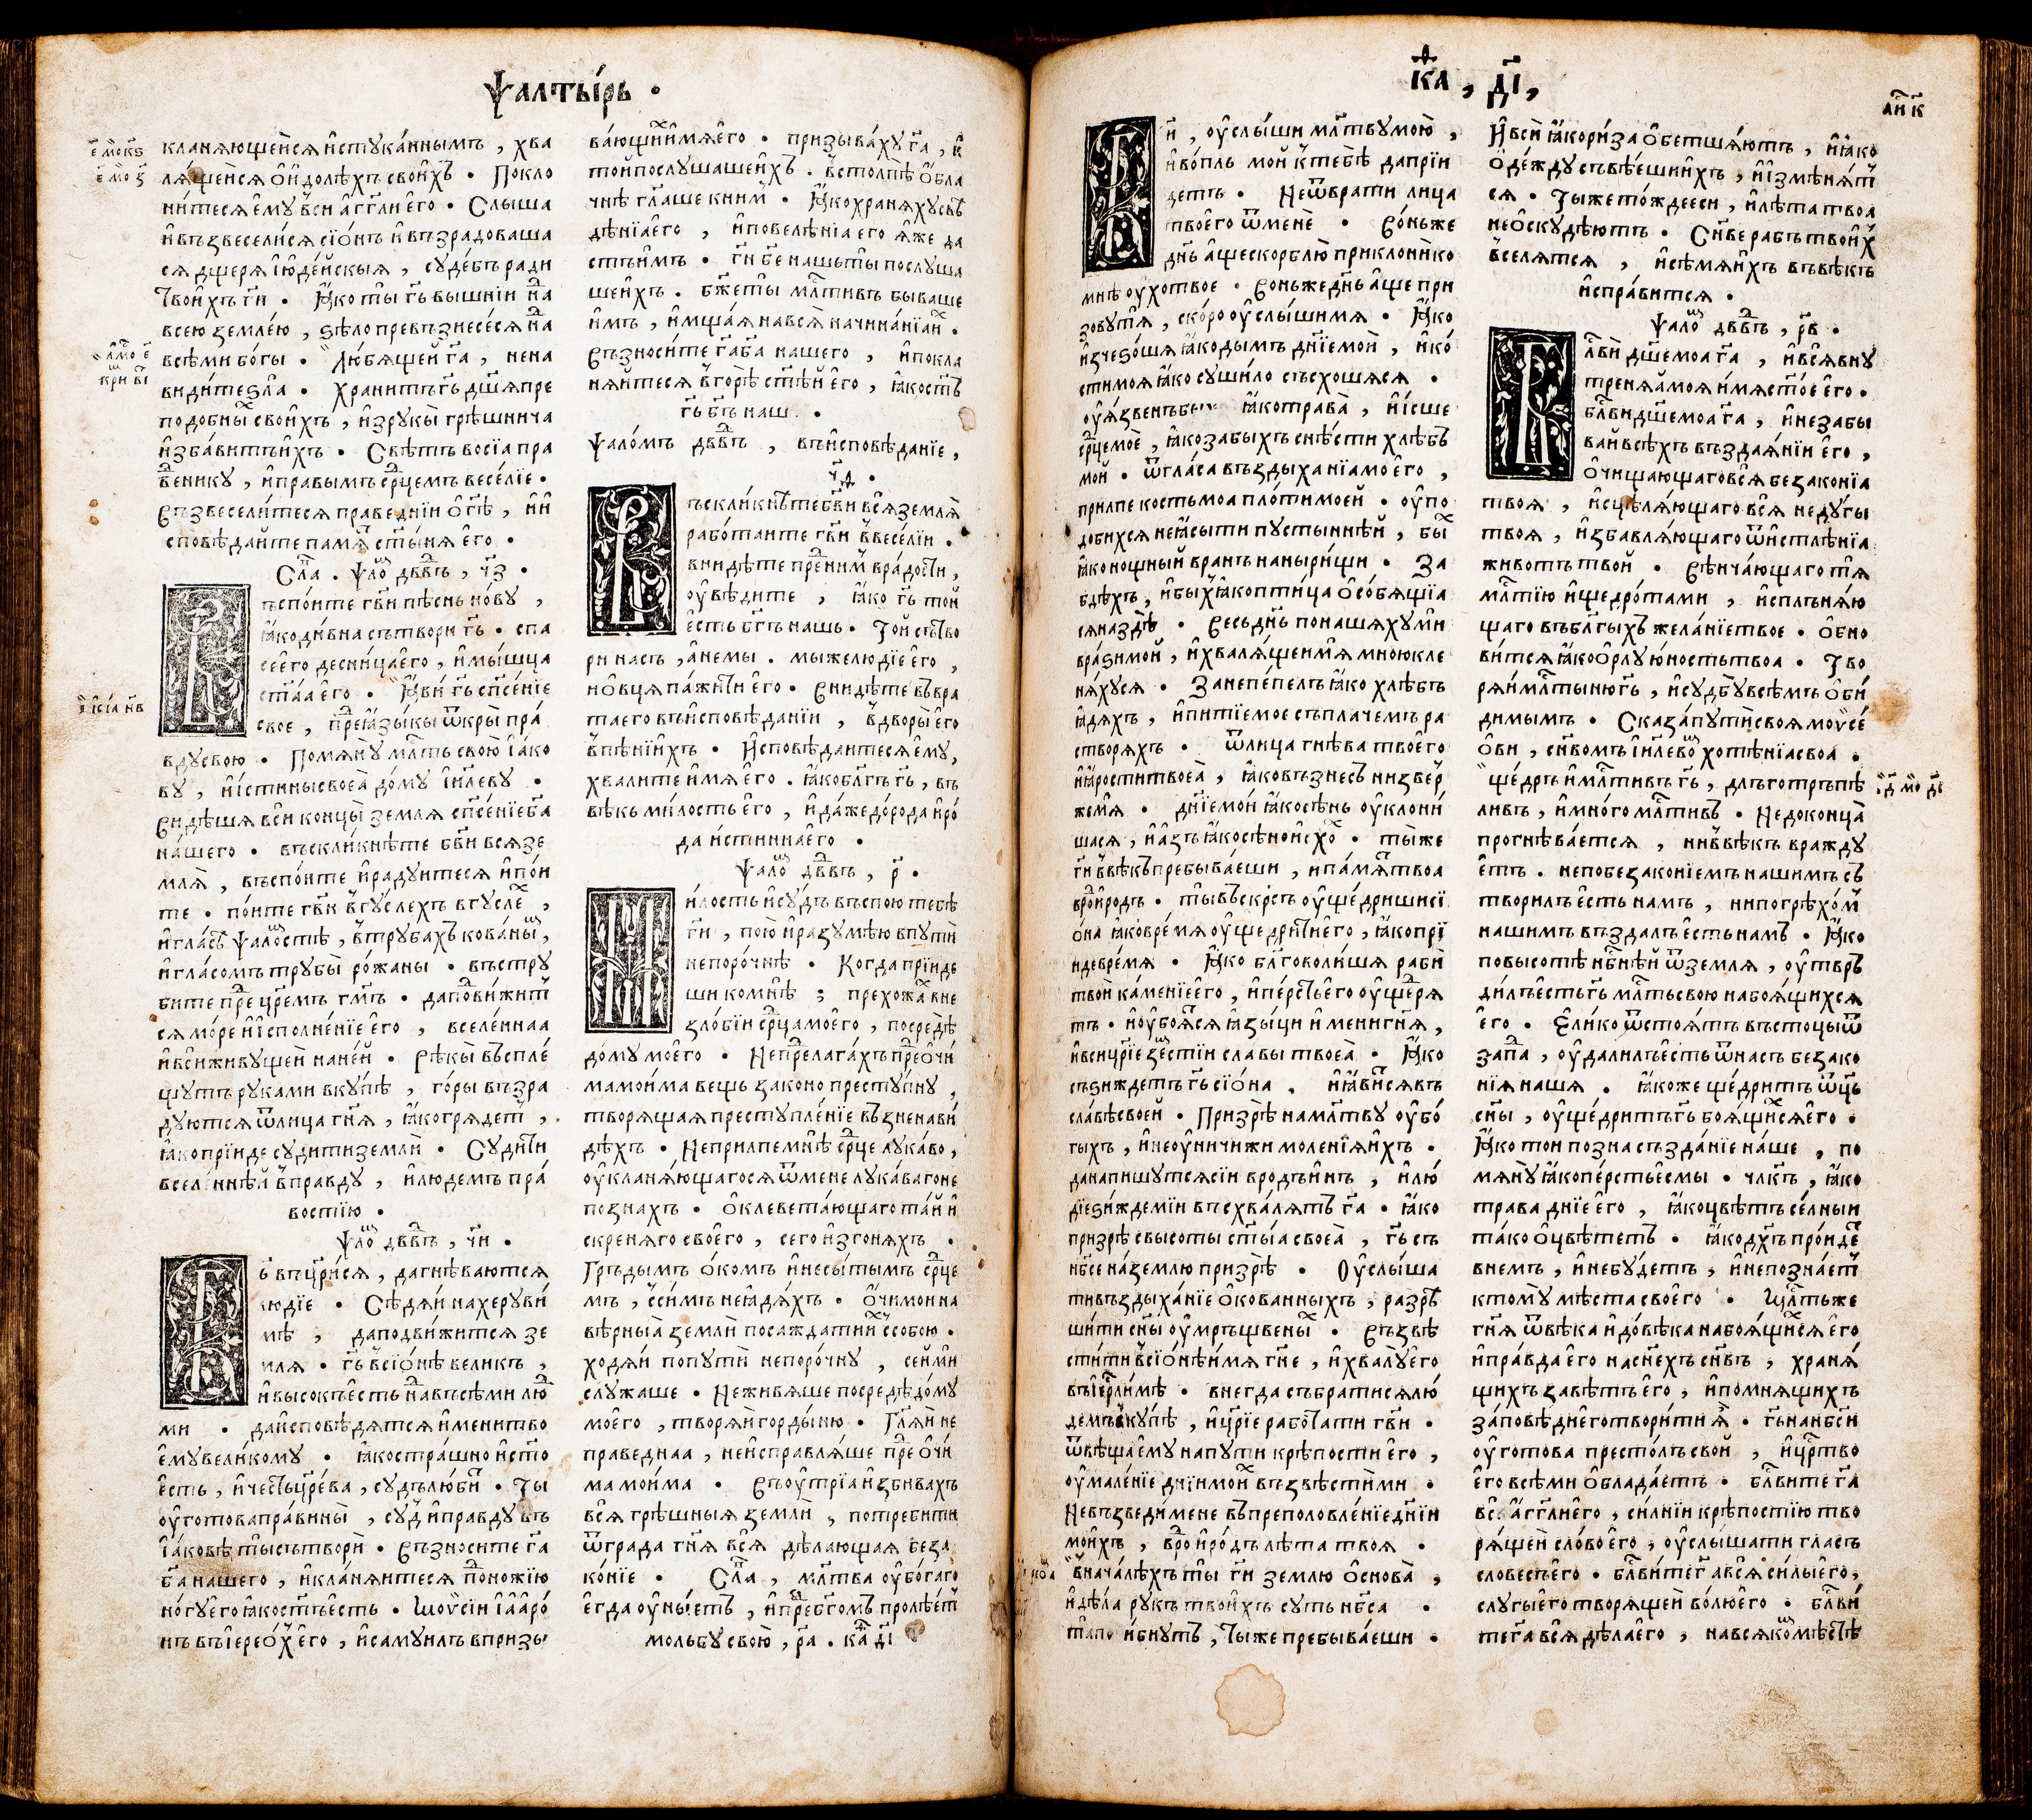 Ѱалты́рь ·
кланѧющеисѧ и҆стꙋка́ннымъ , хва
лѧ́щеисѧ ѻ҆ и҆долѣхъ свои҆хъ · Покло
ни́тесѧ є҆мꙋ̀ всѝ а҆́гг҃ли є҆го̀ · Слыша
и҆ въꙁвесели́сѧ сїѡ́нъ и҆ въꙁрадоваша
сѧ дщерѧ і҆ю҆де́йскыѧ , сꙋде́бъ ради
твои́хъ гѝ · Ꙗ҆́ко ты̀ гь҃ вышнїи наⷣ
всею ꙁемле́ю , ѕѣло превъꙁнесе́сѧ наⷣ
всѣми бо́гы · Лю́бѧщей га҃ , нена
види́те ѕла̀ · Храни́тъ гь҃ дш҃ѧ пре
подо́бныⷯ свои́хъ , и҆ꙁ рꙋкы̀ грѣшнича
и҆ꙁба́витъ и҆хъ · Свѣ́тъ восїа̀ пра
веⷣникꙋ , и҆ пра́вымъ срⷣцемъ весе́лїе ·
Въꙁвесели́тесѧ пра́веднїи ѡ҆ гѣ҃ , и҆ и҆
сповѣ́дайте па́мѧⷮ ст҃ы́нѧ є҆го̀ ·
Слаⷡ · ѱлоⷨ дв҃дъ , ч҃ꙁ ·
ъспо́ите гв҃и пѣснь но́вꙋ ,
ꙗ҆́ко ди́вна сътвори̂ гь҃ · спа
сѐ є҆го̀ десни́ца є҆го̀ , и҆ мы́шца
ст҃а́а є҆го̀ · Ꙗ҆ви̂ гь҃ сп҃се́нїе
своѐ , преⷣ ꙗ҆ꙁы́кы ѿкры̀ пра́
вдꙋ свою̀ · Помѧнꙋ̀ млⷭ҇ть свою̀ і҆а́ко
вꙋ , и҆ и҆́стинꙋ своеа̀ до́мꙋ і҆и҃левꙋ ·
Ви́дѣшѧ всѝ концы̀ ꙁемлѧ сп҃се́нїе ба҃
на́шего · въскли́кнѣте бв҃и всѧ ꙁе
млѧ̀ , въспо́ите и҆ ра́дꙋитесѧ и҆ по́и
те · по́ите гв҃и в гꙋ́слехъ в гꙋслеⷯ ,
и҆ гла́сѣⷨ ѱало́мстѣ , в трꙋба́хъ кова́ныⷯ ,
и҆ гла́сомъ трꙋбы̀ ро́жаны · въстрꙋ
би́те преⷣ цр҃емъ гм҃ъ · да подви́житⷭ
сѧ мо́ре и҆ и҆сполне́нїе є҆го̀ , вселе́ннаа
и҆ вси̂ живꙋ́щей на не́й · Рѣ́кы въспле́
щꙋтъ рꙋка́ми вкꙋ́пѣ , го́ры въꙁра
дꙋютсѧ ѿ лица гн҃ѧ , ꙗ҆́ко грѧде́тъ ,
ꙗ҆́ко прїи́де сꙋди́ти ꙁемлѝ · Сꙋди́ти
вселе́ннѣй в пра́вдꙋ , и҆ людемъ пра́
востїю ·
ѱлоⷨ дв҃дъ , ч҃и ·
ь҃ въцр҃и́сѧ , да гнѣ́ваютсѧ
лю́дїе · Сѣдѧ́и на херꙋви́
мѣ , да подви́житсѧ ꙁе
млѧ · гь҃ в сїѡ́нѣ вели́къ ,
и҆ высо́къ є҆́сть наⷣ въсѣми люⷣ
ми · да и҆сповѣ́дѧтсѧ и҆мени тво
є҆мꙋ̀ вели́комꙋ · ꙗ҆́ко стра́шно и҆ ст҃о
є҆́сть , и҆ че́сть цр҃е́ва , сꙋдъ лю́биⷮ · Ты
ѹ҆гото́ва пра́вины̀ , сꙋдъ и҆ пра́вдꙋ въ
і҆а́ковѣ ты̀ сътвори̂ · Въꙁноси́те га҃
ба҃ на́шего , и҆ кла́нѧитесѧ подно́жїю
но́гꙋ є҆го̀ ꙗ҆́ко ст҃ъ є҆́сть · Мѡѷсїи і҆ а҆арѡ́
нъ въ і҆ере́ѡⷯ є҆го̀ , и҆ самꙋи́лъ в приꙁы
ва́ющиⷯ и҆́мѧ є҆го̀ · приꙁыва́хꙋ га҃ , и҆
то́й послꙋ́шаше и҆́хъ · в столпѣ̀ ѻ҆́бла
чнѣ гл҃аше к ни́мъ · Ꙗ҆́ко хранѧ́хꙋ свѣ
дѣ́нїа є҆го̀ , и҆ повелѣ́нїа его ꙗ҆́же да
стъ и҆́мъ · ги҃ бе҃ нашь ты̀ послꙋ́ша
ше и҆́хъ · бж҃е ты̀ млⷭ҇тивъ быва́ше
и҆́мъ , и҆ мща́ѧ на всѧ̀ начина́нїа и҆ⷯ ·
Въꙁноси́те га҃ ба҃ на́шего , и҆ покла
нѧ́итесѧ в горѣ̀ ст҃ѣ́й є҆го̀ , ꙗ҆́ко ст҃ъ
гь҃ бг҃ъ наш ·
Ѱало́мъ дв҃дъ , въ и҆сповѣ́данїе ,
ч҃ѳ ·
ъскли́кнѣте бв҃и всѧ̀ ꙁемлѧ̀
рабо́таите гв҃и в весе́лїи ·
вни́дѣте преⷣ ни́мъ в ра́дости ,
ѹ҆вѣ́дите , ꙗ҆́ко гь҃ то́й
є҆́сть бг҃ъ нашь · То́й сътво
ри на́съ , а҆ не мы́ · мы́ же лю́дїе є҆го̀ ,
и҆ ѻ҆́вцѧ па́жити є҆го̀ · Вни́дѣте въ вра
та̀ его въ и҆сповѣ́данїи , в дворы̀ є҆го̀
в пѣ́нїиⷯ · И҆сповѣ́даитесѧ є҆мꙋ̀ ,
хвали́те и҆́мѧ є҆го̀ · ꙗ҆́ко бл҃гъ гь҃ , въ
вѣ́къ ми́лость є҆го̀ , и҆ да́же до́ рода и҆ ро́
да и҆́стинна є҆го̀ ·
Ѱалоⷨ дв҃дъ , р҃ ·
и҆́лость и҆ сꙋ́дъ въспою̀ тебѣ̀
ги҃ , пою̀ и҆ раꙁꙋмѣ́ю в пꙋтѝ
непоро́чнѣ · Когда̀ прїи́де
ши ко мнѣ ; прехожа́ⷯ в не
ꙁло́бїи срⷣца моего̀ , посредѣ̀
до́мꙋ моего̀ · Не предлага́хъ преⷣ ѻ҆чи́
ма мои́ма вещь ꙁаконопрестꙋ́пнꙋ ,
творѧ́щаѧ престꙋпле́нїе въꙁненави́
дѣхъ · Не прилпѐ мнѣ срⷣце лꙋка́во ,
ѹ҆кланѧ́ющагосѧ ѿ менѐ лꙋка́ваго не
поꙁна́хъ · Ѻ҆клевета́ющаго та́й и҆́
скренѧго своего̀ , сего̀ и҆ꙁгонѧ́хъ ·
Гръ́дымъ ѻ҆́комъ и҆ несы́тымъ срⷣце
мъ , с си́мъ не ꙗ҆дѧ́хъ · Ѻ҆́чи мои на
вѣ́рныа̀ ꙁемлѝ посажда́ти и҆ⷯ с собою ·
ходѧ́и по пꙋтѝ непоро́чнꙋ , се́й мѝ
слꙋ́жаше · Не живѧ́ше посредѣ̀ до́мꙋ
моего̀ , творѧ́и горды́ню · Гл҃ѧ́и не
пра́веднаа , не и҆справлѧ́ше преⷣ ѻ҆чи́
ма мои́ма · Въ ѹ҆́трїа и҆ꙁбива́хъ
всѧ̀ грѣ́шныѧ ꙁемлѝ , потреби́ти
ѿ града гн҃ѧ всѧ̀ дѣ́лающаѧ беꙁа
ко́нїе · Слаⷡ , млⷭ҇тва ѹ҆бо́гаго
є҆гда̀ ѹ҆ны́етъ , и҆ преⷣ бг҃омъ пролѣе́тⷭ
мольбꙋ̀ свою̀ , р҃а · каⷴ д҃і
каⷴ , д҃і ,
а҃ и҃ к҃
и҃ , ѹ҆слы́ши млⷭ҇твꙋ мою̀ ,
и҆ во́пль мо́й к тебѣ̀ да прїи
детъ · Не ѿврати̂ лица̀
твоего̀ ѿ менѐ · Во́ньже
дн҃ь а҆́ще скорблю̀ приклонѝ ко
мнѣ̀ ѹ҆́хо твое · Во́ньже дн҃ь а҆́ще при
ꙁовꙋ́ тѧ , ско́ро ѹ҆слы́ши мѧ · Ꙗ҆́ко
и҆ꙁчеѕо́шѧ ꙗ҆́ко дымъ дн҃їе мои́ , и҆ ко́
сти моѧ ꙗ҆́ко сꙋши́ло съсхо́шѧсѧ ·
ѹ҆ѧ́ꙁвенъ бых ꙗ҆́ко трава̀ , и҆ и҆́сше
срⷣце моѐ , ꙗ҆́ко ꙁабы́хъ снѣ́сти хлѣ́бъ
мой · ѿ гла́са въꙁдыха́нїа моего̀ ,
прилпѐ ко́сть моа пло́ти мое́й · ѹ҆по
до́бихсѧ неꙗ҆́сыти пꙋсты́ннѣй , быⷯ
ꙗ҆́ко но́щный вра́нъ на ны́рищи · За
бдѣ́хъ , и҆ бы́хъ ꙗ҆́ко пти́ца ѻ҆собѧ́щїа
сѧ на ꙁдѣ · Весь дн҃ь поноша́хꙋ мѝ
враꙁи́ мой , и҆ хвалѧ́щеи мѧ мно́ю кле
нѧ́хꙋсѧ · Занѐ пе́пелъ ꙗ҆́ко хлѣ́бъ
ꙗ҆дѧ́хъ , и҆ питїѐ мое съ пла́чемъ ра
створѧ́хъ · ѿ лица гнѣ́ва твоего̀
и҆ ꙗ҆́рости твоеа̀ , ꙗ҆́ко въꙁне́съ ниꙁве́р
же мѧ · дн҃їе мои́ ꙗ҆́ко сѣ́нь ѹ҆клони́
шасѧ , и҆ а҆́ꙁъ ꙗ҆́ко сѣ́но и҆́схоⷯ · ты́ же
ги҃ в вѣ́къ пребыва́еши , и па́мѧть твоа
в роⷣ и҆ ро́дъ · ты̀ въскр҃съ ѹ҆ще́дриши сї
ѡ́на ꙗ҆́ко вре́мѧ ѹ҆ще́дрити є҆го̀ , ꙗ҆́ко прї
иде вре́мѧ · Ꙗ҆́ко бл҃говоли́шѧ рабѝ
твои̂ ка́менїе є҆го̀ , и҆ пе́рсть є҆го̀ ѹ҆ще́дрѧ
тъ · и҆ ѹ҆боѧ́тсѧ ꙗ҆ꙁы́ци и҆́мени гн҃ѧ ,
и҆ вси цр҃їе ꙁе́мстїи сла́вы твоеа̀ · Ꙗ҆́ко
съꙁи́ждетъ гь҃ сїѡ́на , и҆ ꙗ҆ви́тсѧ въ
сла́вѣ свое́й · Приꙁрѣ̀ на млⷭ҇твꙋ ѹ҆бо́
гыхъ , и҆ не ѹ҆ничижѝ моле́нїѧ и҆́хъ ·
да напи́шꙋтсѧ сїи̂ в ро́дъ и҆́нъ , и҆ лю́
дїе ꙁи́ждемїи въсхва́лѧтъ га҃ · ꙗ҆́ко
приꙁрѣ̀ с высоты̀ ст҃ы́а своеа̀ , гь҃ съ
нб҃се на́ ꙁемлю приꙁрѣ̀ · ѹ҆слы́ша
ти въꙁдыха́нїе ѻ҆кова́нныхъ , раꙁрѣ
ши́ти сн҃ы ѹ҆мръщве́ныⷯ · Въꙁвѣ
сти́ти в сїѡ́нѣ и҆́мѧ гн҃е , и҆ хвалꙋ̀ є҆го̀
въ і҆ер҃ли́мѣ · внегда̀ събра́тисѧ лю́
демъ вкꙋ́пѣ , и҆ цр҃їе рабо́тати гв҃и ·
ѿвѣща̀ є҆мꙋ̀ на пꙋтѝ крѣ́пости є҆го̀ ,
ѹ҆мале́нїе днїи мои́хъ въꙁвѣсти́ ми ·
Не въꙁведи́ мене въ преполовле́нїе дн҃їи
мои́хъ , в роⷣ и҆ ро́дъ лѣ́та твоѧ ·
в нача́лѣхъ ты̀ ги҃ ꙁемлю ѻ҆снова̀ ,
и҆ дѣ́ла рꙋкъ твои́хъ сꙋ́ть нб҃са ·
та́ по и́бнꙋтъ , ты́ же пребыва́еши ·
И҆ всѝ ꙗ҆́ко ри́ꙁа ѻ҆бетша́ютъ , и҆ ꙗ҆́ко
ѻ҆де́ждꙋ съвїе́ши и҆́хъ , и҆ и҆ꙁмѣнѧ́тⷭ
сѧ · Ты́ же то́жде еси , и҆ лѣ́та твоа
не ѻ҆скꙋдѣ́ютъ · Сн҃ве ра́бъ твои́хъ
вселѧ́тсѧ , и҆ сѣ́мѧ и҆́хъ въ вѣ́къ
и҆спра́витсѧ ·
Ѱалоⷨ дв҃дъ , р҃в ·
лв҃и̂ дш҃е моа га҃ , и҆ всѧ̀ внꙋ
тренѧѧ моѧ и҆́мѧ ст҃о́е є҆го̀ ·
бл҃ви̂ дш҃е моа га҃ , и҆ не ꙁабы
ва́й всѣ́хъ въꙁдаѧ́нїи є҆го̀ ,
ѻ҆чища́ющаго всѧ̀ беꙁако́нїа
твоѧ , и҆сцѣлѧ́ющаго всѧ̀ недꙋ́гы
твоѧ , и҆ꙁбавлѧ́ющаго ѿ и҆стлѣ́нїа
живо́тъ тво́й · Вѣнча́ющаго тѧ
млⷭ҇тїю и҆ щедро́тами , и҆спълнѧ́ю
щаго въ бл҃гы́хъ жела́нїе твое · ѻ҆бно
ви́тсѧ ꙗ҆́ко ѻ҆́рлꙋ ю́ность твоа · Тво
рѧ́и млⷭ҇тынѧ гь҃ , и҆ сꙋдбꙋ̀ всѣ́мъ ѻ҆би́
димымъ · Скаꙁа̀ пꙋтѝ своѧ моѷсе́
ѻви , сн҃во́мъ і҆и҃левоⷨ хотѣ́нїа своа ·
ще́дръ и҆ млⷭ҇тивъ гь҃ , дълготръпѣ
ли́въ , и҆ мно́гомлⷭ҇тивъ · Не до конца̀
прогнѣ́ваетсѧ , ни в вѣ́къ враждꙋ
є҆тъ · не по беꙁако́нїемъ на́шимъ съ
твори́лъ є҆́сть на́мъ , ни по грѣхо́мъ
на́шимъ въꙁда́лъ є҆́сть на́мъ · Ꙗ҆́ко
по высотѣ̀ нб҃снѣ́й ѿ ꙁемлѧ , ѹ҆твръ
ди́лъ є҆́сть гь҃ млⷭ҇ть свою на боѧ́щихсѧ
є҆го̀ · Є҆ли́ко ѿстоѧ́тъ въсто́цы ѿ
ꙁапаⷣ , ѹ҆дали́лъ є҆́сть ѿ на́съ беꙁако
нїѧ на́шѧ · ꙗ҆́коже ще́дритъ ѿц҃ь
сн҃ы , ѹ҆ще́дритъ гь҃ боѧ́щиⷯсѧ є҆го̀ ·
Ꙗ҆́ко то́и поꙁна̀ съꙁда́нїе на́ше , по
мѧнꙋ̀ ꙗ҆́ко пе́рсть є҆смы · чл҃къ , ꙗ҆́ко
трава̀ дн҃їе є҆го̀ , ꙗ҆́ко цвѣ́тъ се́лныи
та́ко ѻ҆цвѣте́тъ · ꙗ҆́ко дх҃ъ про́иде
в не́мъ , и҆ не бꙋ́детъ , и҆ не поꙁна́етⷭ
ктомꙋ̀ мѣ́ста своего̀ · Млⷭ҇ть же
гн҃ѧ ѿ вѣ́ка и҆ до́ вѣка на боѧ́щиⷯсѧ є҆го̀
и҆ пра́вда є҆го̀ на сн҃е́хъ сн҃въ , хранѧ́
щихъ ꙁавѣ́тъ є҆го̀ , и҆ по́мнѧщихъ
ꙁа́повѣди є҆го̀ твори́ти ѧ҆̀ · гь҃ на нб҃си̂
ѹ҆гото́ва престо́лъ сво́й , и҆ цр҃тво
є҆го̀ всѣ́ми ѻ҆блада́етъ · бл҃ви́те га҃
всѝ а҆́гг҃ли є҆го̀ , си́лнїи крѣ́постїю тво
рѧ́щеи сло́во є҆го̀ , ѹ҆слы́шати гла́съ
слове́съ є҆го̀ · бл҃ви́те га҃ всѧ̀ си́лы є҆го̀ ,
слꙋгы̀ є҆го̀ творѧ́щеи во́лю є҆го̀ · бл҃ви́
те га҃ всѧ̀ дѣ́ла є҆го̀ , на всѧ́коⷨ мѣ́стѣ